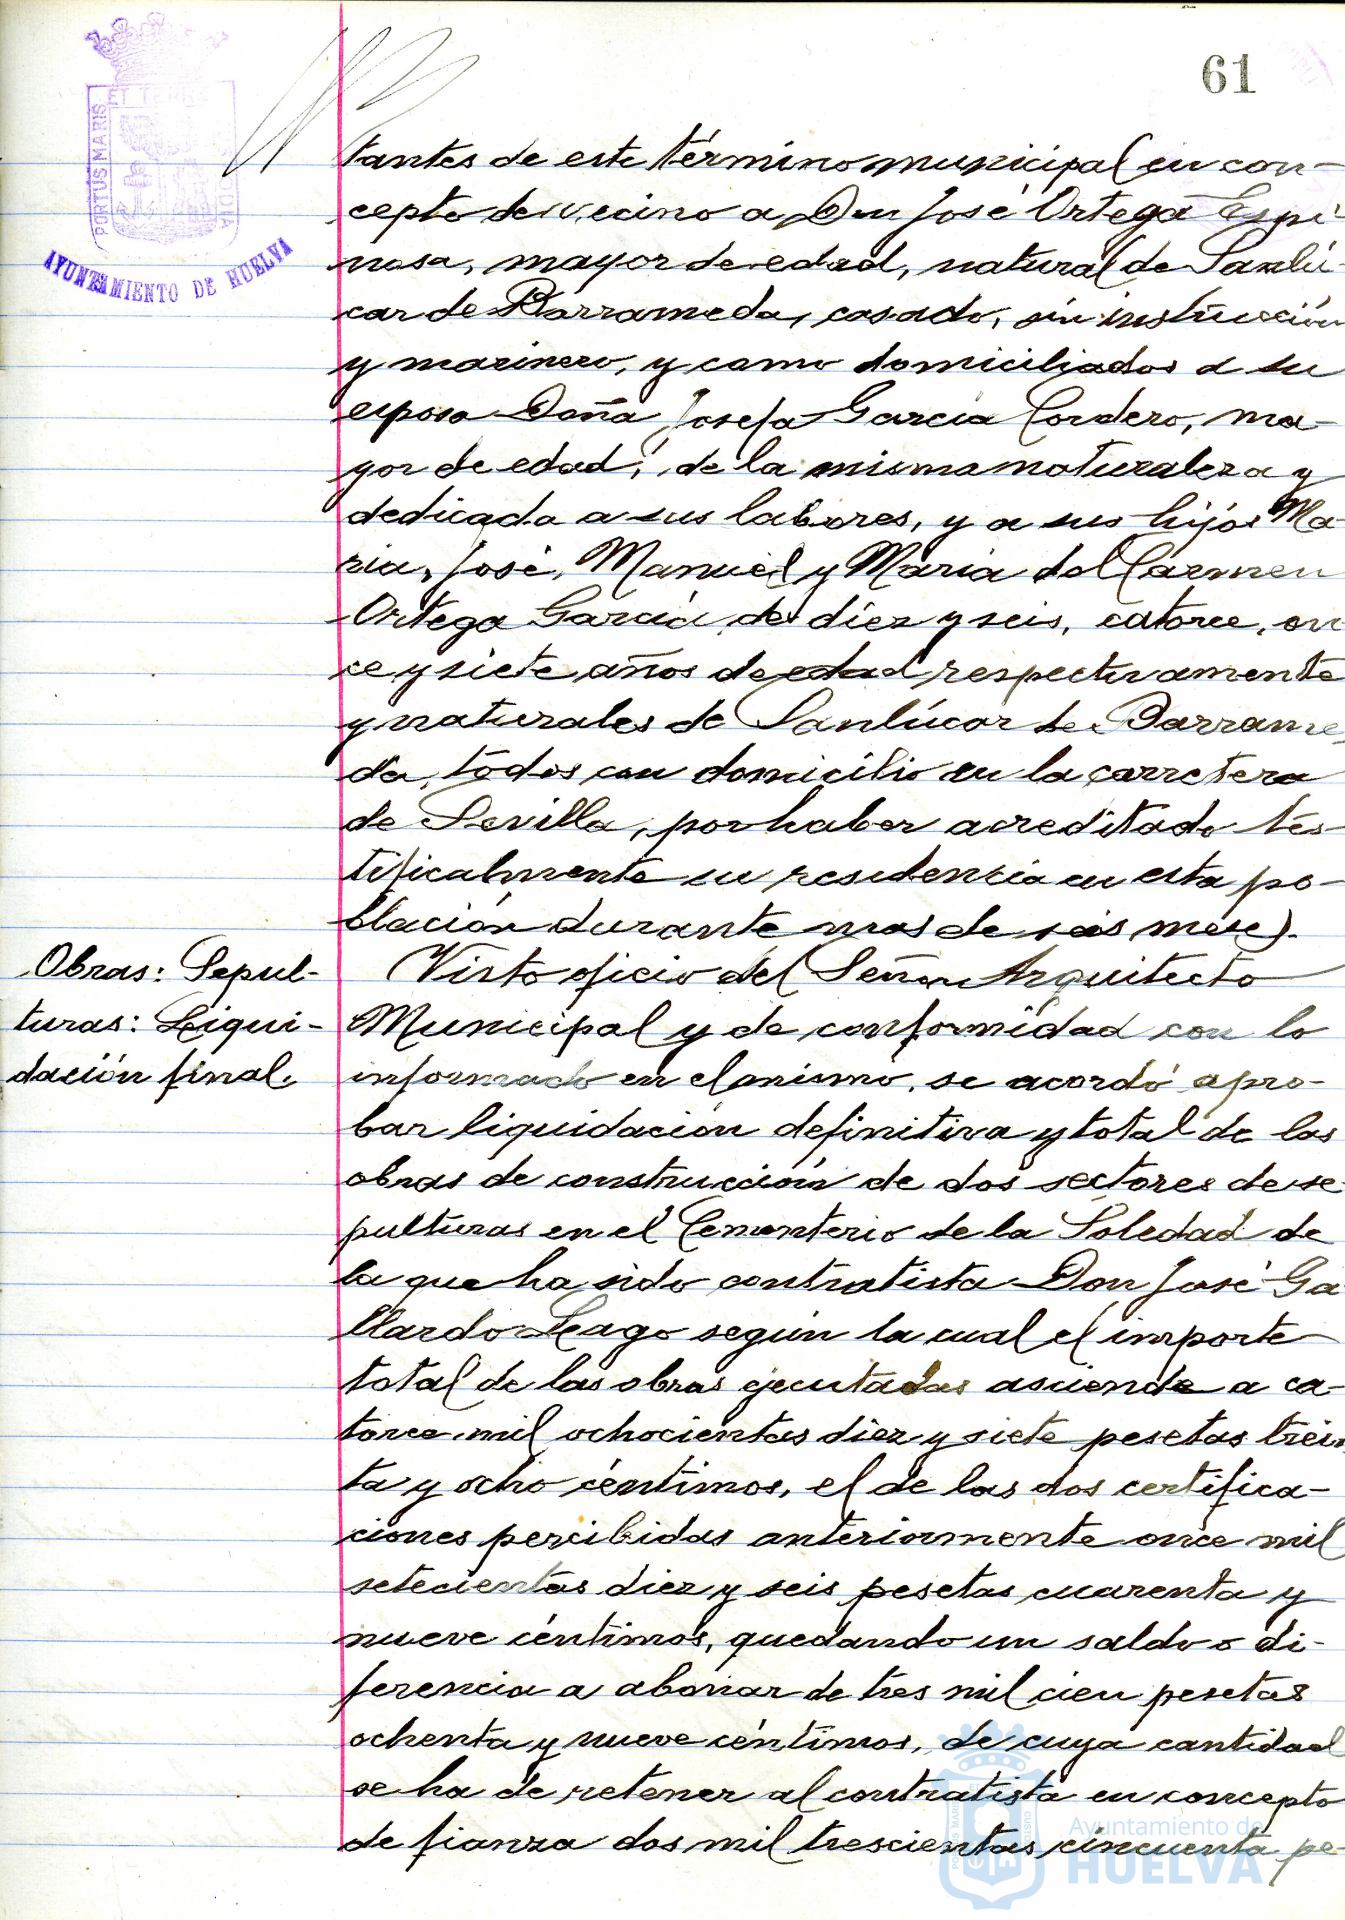 61
PORTUS MARIS ET TERRÆ CUSTODIA
AYUNTAMIENTO DE HUELVA
tantes de este término municipal en con-
cepto de vecino a Don José Ortega Espi-
nosa, mayor de edad, natural de Sanlú-
car de Barrameda, casado, sin instrucción
y marinero, y como domiciliados a su
esposa Doña Josefa García Cordero, ma-
yor de edad, de la misma naturaleza y
dedicada a sus labores, y a sus hijos Ma-
ria, José, Manuel y Maria del Carmen
Ortega García, de diez y seis, catorce, on
ce y siete años de edad respectivamente
y naturales de Sanlúcar de Barrame-
da, todos con domicilio en la carretera
de Sevilla, por haber acreditado tes-
tificalmente su residencia en esta po-
blación durante mas de seis meses.
Obras: Sepul-
turas: Liqui-
dación final.
Visto oficio del Señor Arquitecto
Municipal y de conformidad con lo
informado en el mismo, se acordó apro-
bar liquidación definitiva y total de las
obras de construcción de dos sectores de se-
pulturas en el Cementerio de la Soledad de
la que ha sido contratista Don José Ga
llardo Leago según la cual el importe
total de las obras ejecutadas asciende a ca-
torce mil ochocientas diez y siete pesetas trein
ta y ocho céntimos, el de las dos certifica-
ciones percibidas anteriormente once mil
setecientas diez y seis pesetas cuarenta y
nueve céntimos, quedando un saldo o di-
ferencia a abonar de tres mil cien pesetas
ochenta y nueve céntimos, de cuya cantidad
se ha de retener al contratista en concepto
de fianza dos mil trescientas cincuenta pe-
Ayuntamiento de
HUELVA